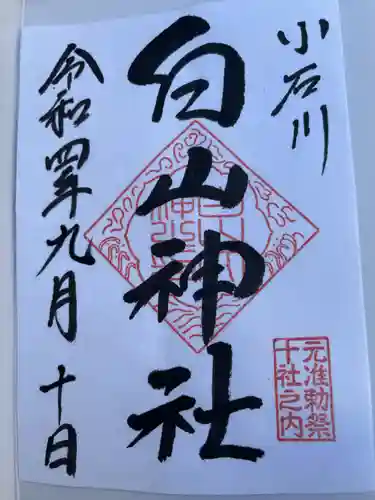 小石川
白山神社
令和四年九月十日
元准勅祭
十社之内